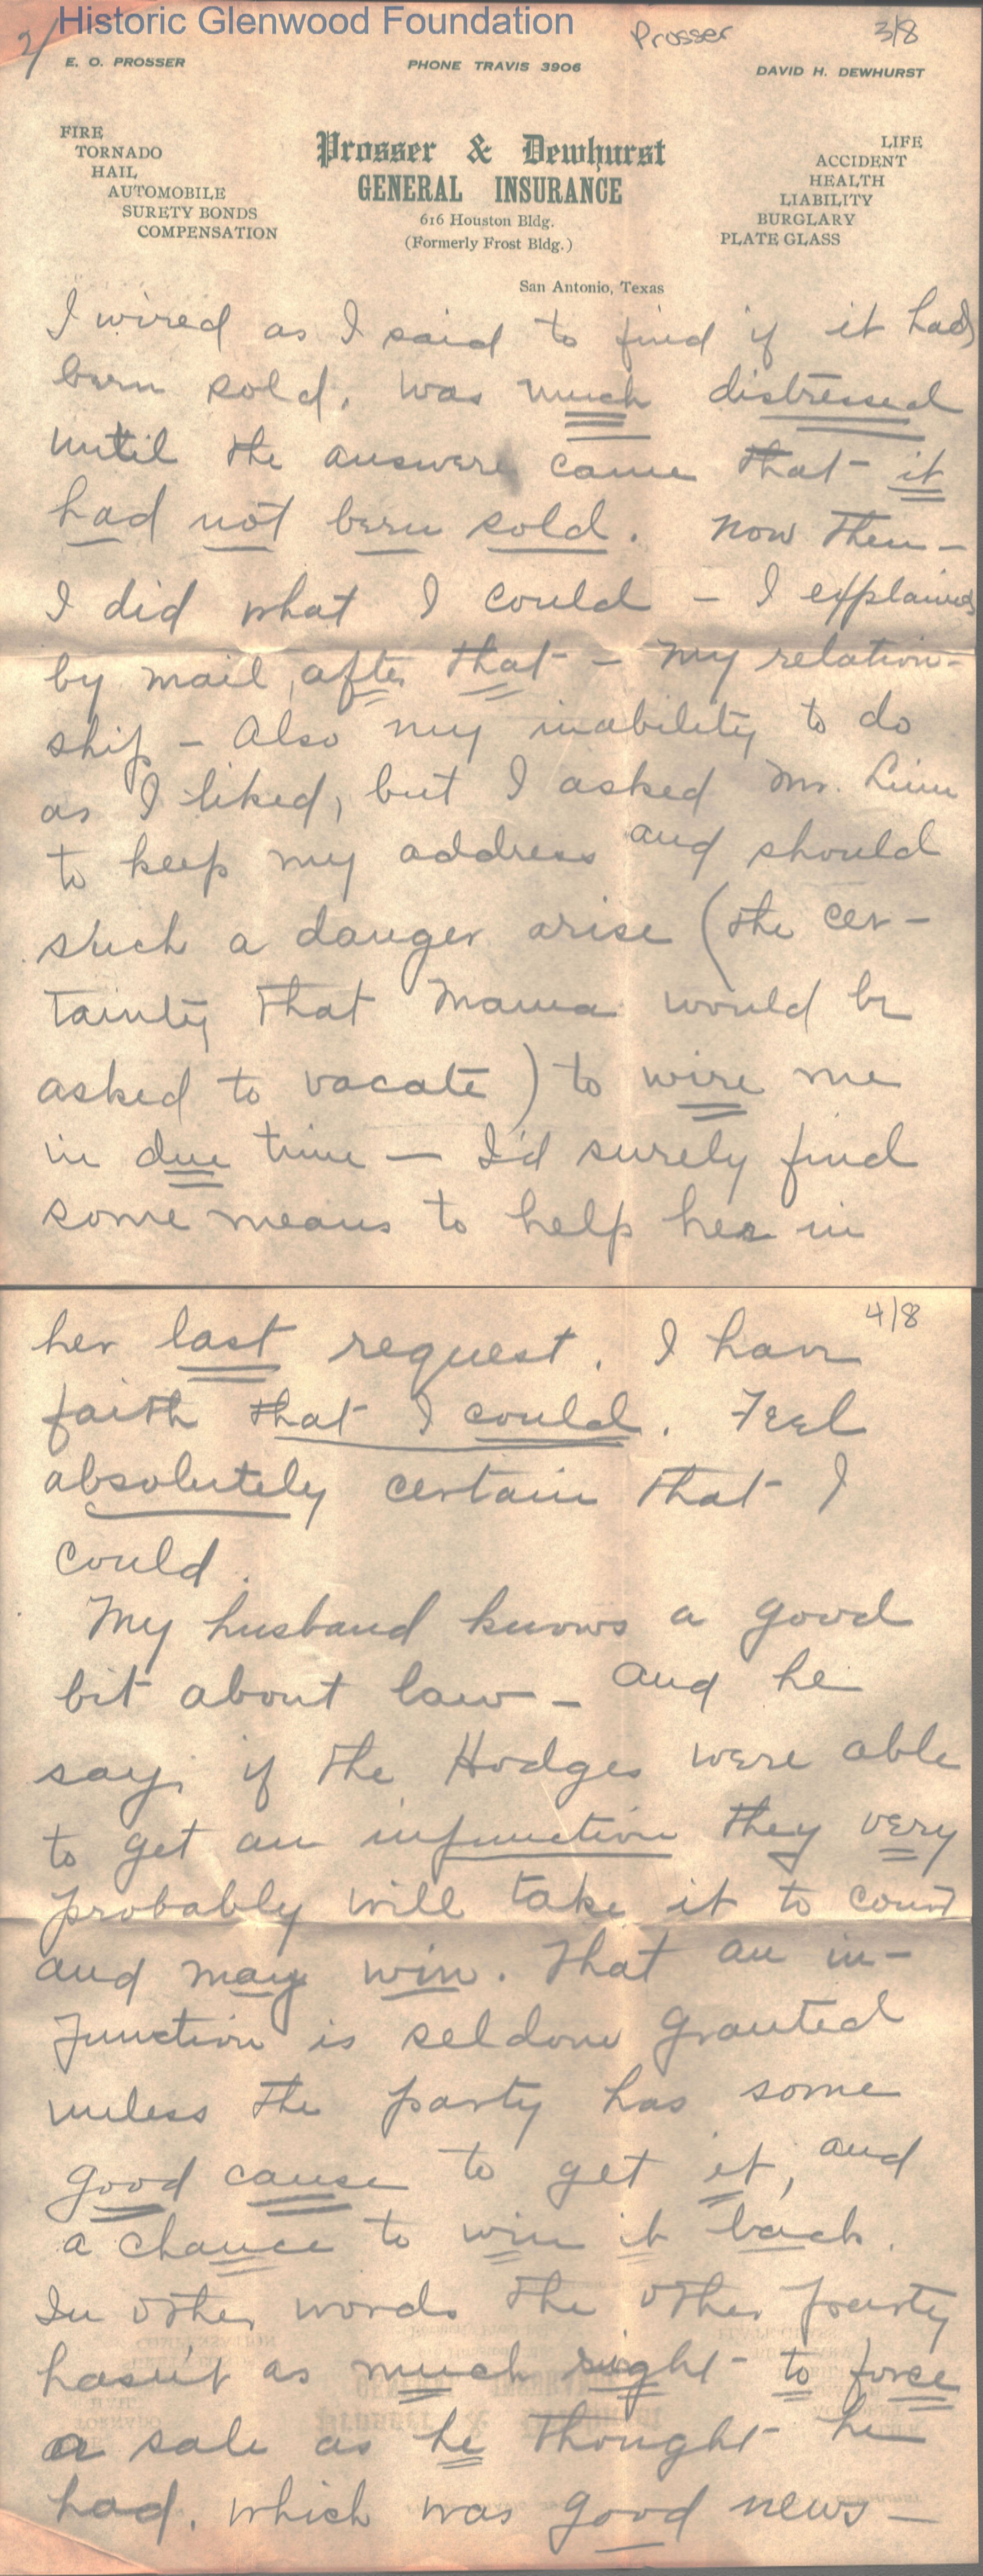 Historic Glenwood Foundation
Prosser 3/8
2/
E. O. PROSSER PHONE TRAVIS 3906 DAVID H. DEWHURST
FIRE
TORNADO
HAIL
AUTOMOBILE
SURETY BONDS
COMPENSATION
Prosser & Dewhurst
GENERAL INSURANCE
616 Houston Bldg.
(Formerly Frost Bldg.)
San Antonio, Texas
LIFE
ACCIDENT
HEALTH
LIABILITY
BURGLARY
PLATE GLASS
I wired as I said to find if it had
been sold. was much distressed
until the answere came that it
had not been sold. Now then –
I did what I could – I explained
by mail, after that – my relation-
ship – Also my inability to do
as I liked, but I asked Mr. Linn
to keep my address and should
such a danger arise (the cer-
tainty that Mama would be
asked to vacate) to wire me
in due time – I'd surely find
some means to help her in
4/8
her last request. I have
faith that I could. Feel
absolutely certain that I
could.
My husband knows a good
bit about law – and he
says if the Hodges were able
to get an injunction they very
probably will take it to court
and may win. That an in-
junction is seldom granted
unless the party has some
good cause to get it, and
a chance to win it back.
In other words the other party
hasn't as much right to force
a sale as he thought he
had, which was good news –